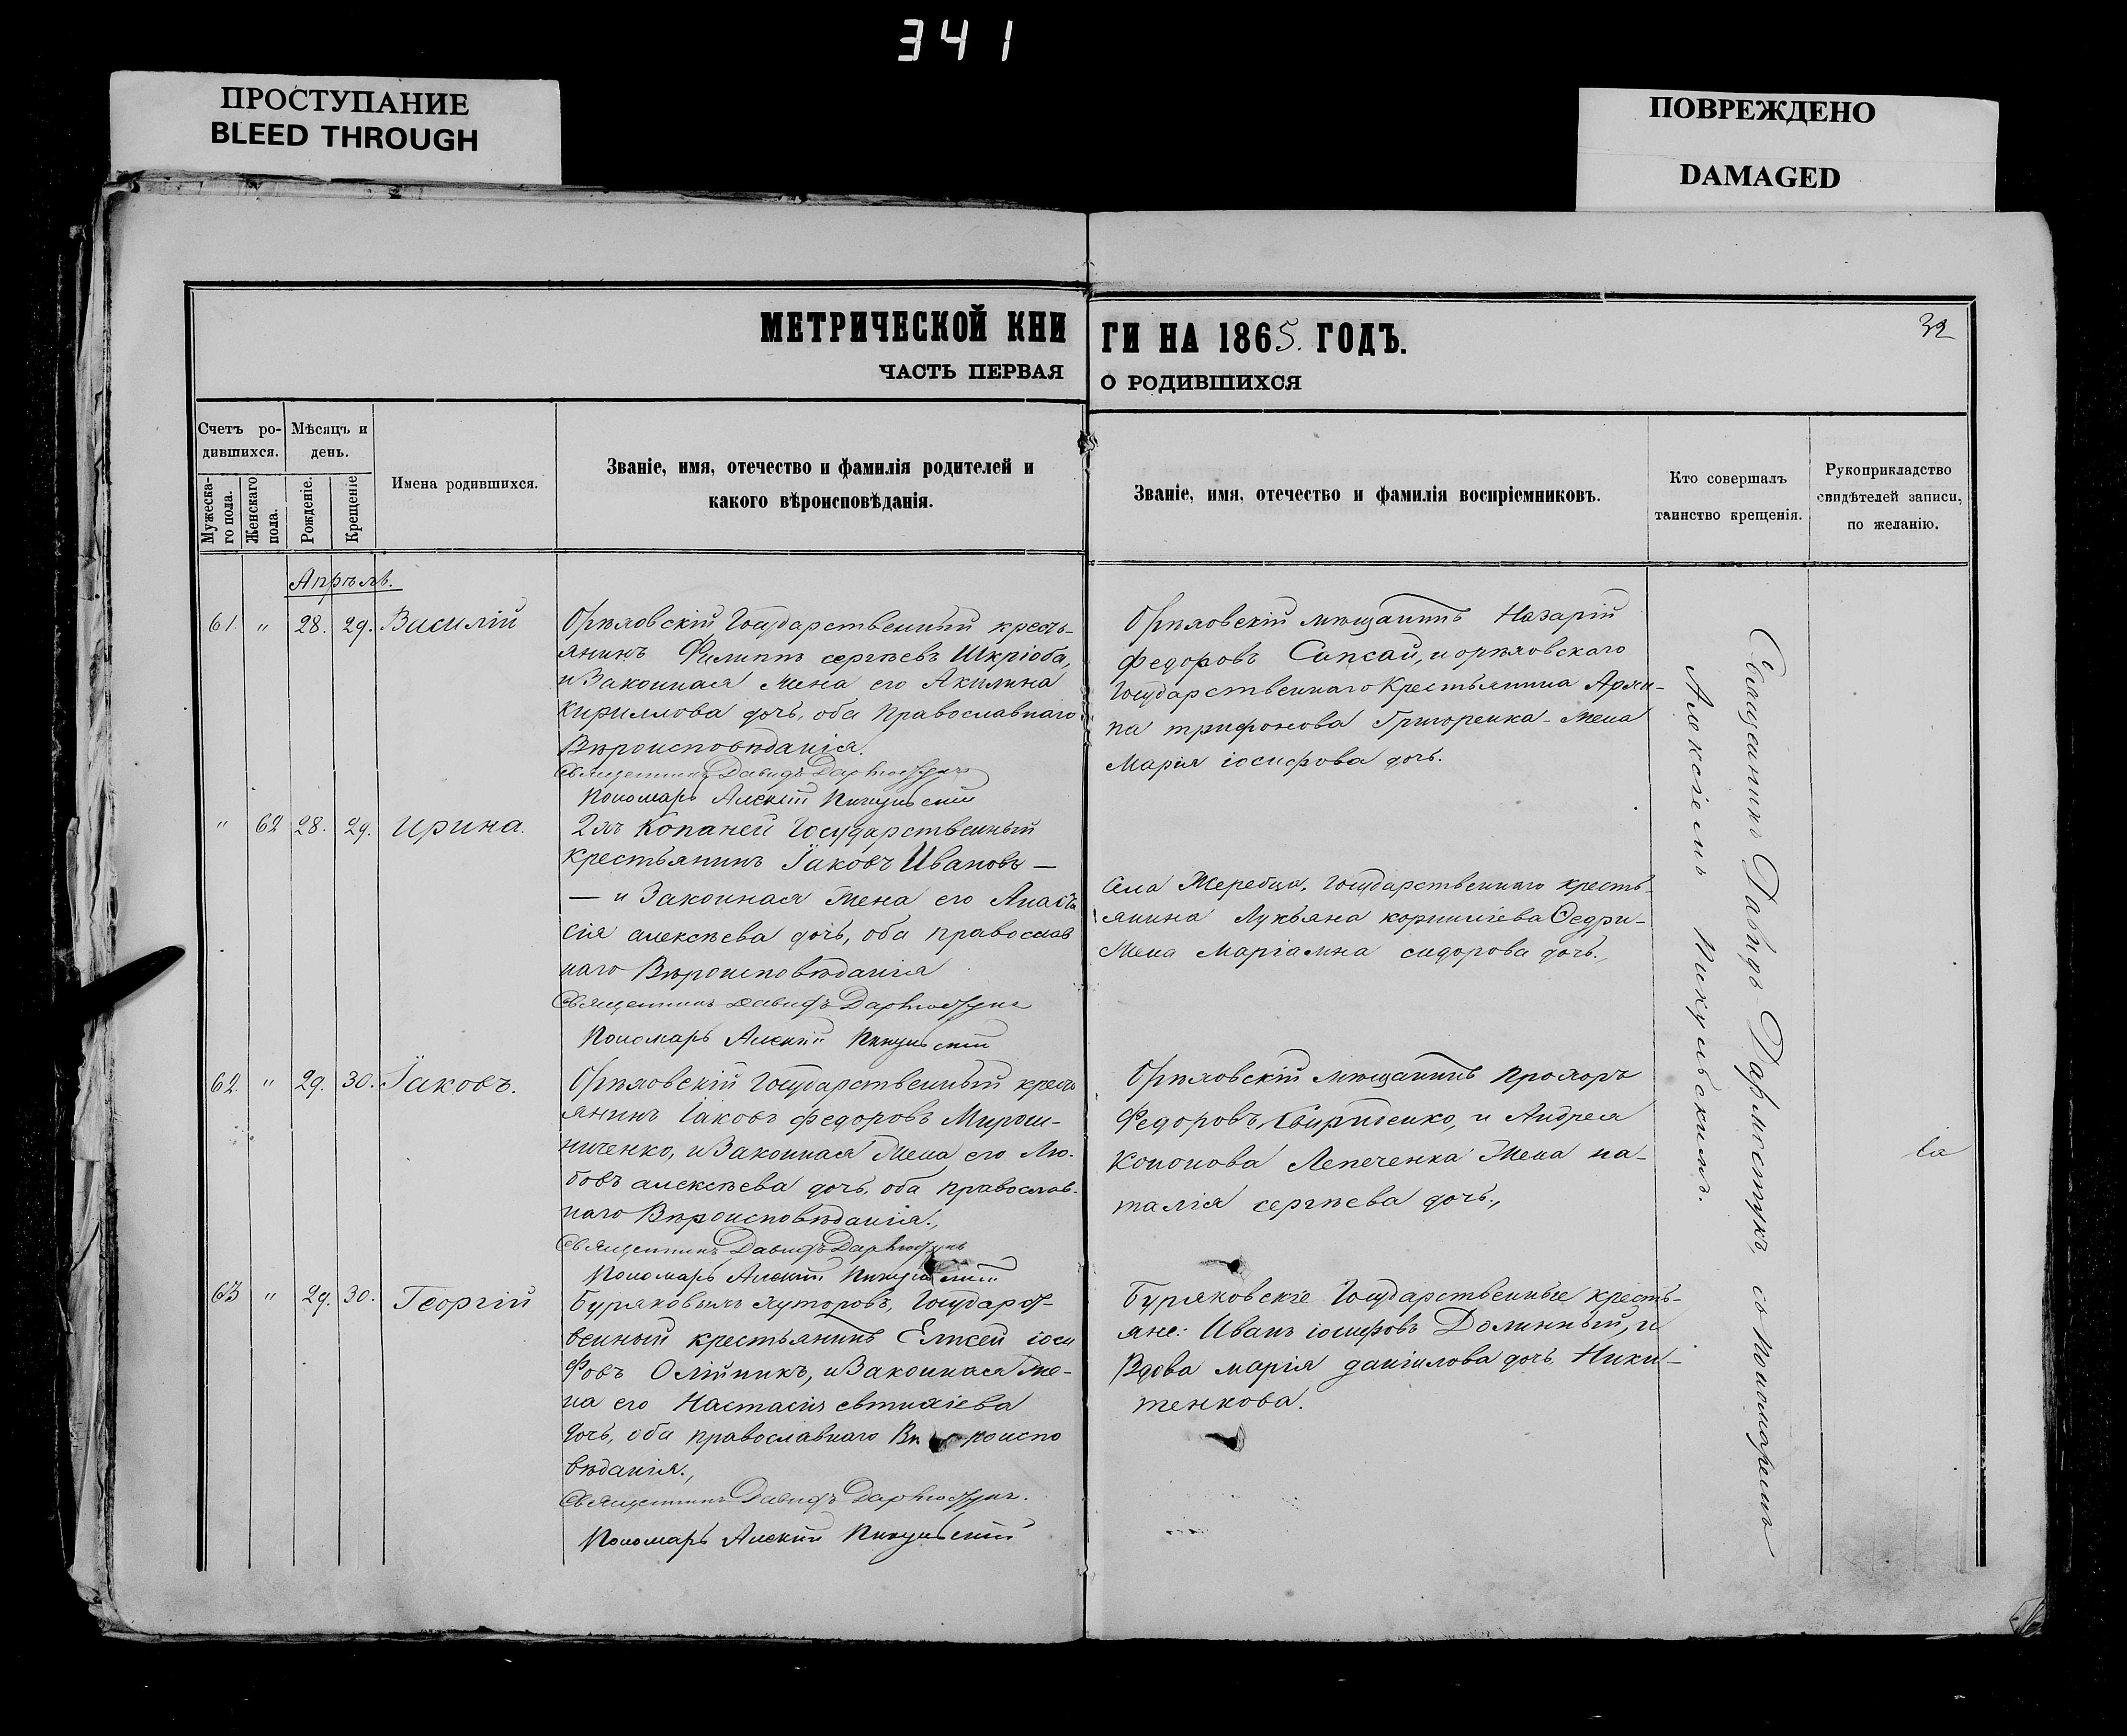 341
ПРОСТУПАНИЕ
BLEED THROUGH
ПОВРЕЖДЕНО
DAMAGED
МЕТРИЧЕСКОЙ КНИ
ГИ НА 1865. ГОДЪ.
32
ЧАСТЬ ПЕРВАЯ
О РОДИВШИХСЯ
Счетъ ро-
дившихся.
Мужеска-
го пола.
Женскаго
пола.
Мѣсяцъ и
день.
Рожденіе.
Крещеніе
Имена родившихся.
Званіе, имя, отечество и фамилія родителей и
какого вѣроисповѣданія.
Званіе, имя, отечество и фамилія воспріемниковъ.
Кто совершалъ
таинство крещенія.
Рукоприкладство
свидѣтелей записи,
по желанію.
Апрѣль.
61. " 28. 29. Василій
Орѣховскій Государственный кресть-
янинъ Филиппъ сергѣевъ Шкріоба,
и Законная жена его Акилина
кириллова дочь, оба Православнаго
Вѣроисповѣданія.
Священникъ Давидъ
Пономарь Алексій
Орѣховскій мѣщанинъ Назарій
федоровъ Сапсай, и орѣховскаго
Государственнаго Крестьянина Архи-
па трифонова Григоренка - жена
Марія іосифова дочь.
" 62 28. 29. Ирина.
2хъ Копаней Государственный
крестьянинъ Іаковъ Ивановъ —
— и Законная жена его Анаста
сія алексѣева дочь, оба православ
наго Вѣроисповѣданія
Священникъ Давидъ
Пономарь Алексій
Села Жеребца, Государственнаго кресть-
янина Лукьяна корниліева
Жена Маріамна сидорова дочь.,
62. " 29. 30. Іаковъ.
Орѣховскій Государственный кресть
янинъ Іаковъ федоровъ Мирош-
ниченко, и Законная Жена его Лю-
бовь алексѣева дочь, оба православ-
наго Вѣроисповѣданія.,
Священникъ Давидъ
Пономарь Алексій
Орѣховскій мѣщанинъ Прохоръ
Федоровъ и Андрея
кононова Лепеченка Жена на-
талія сергѣева дочь.,
63 " 29. 30. Георгій
Буряковыхъ хуторовъ, Государст-
венный крестьянинъ Елисей іоси
фовъ Олійникъ, и Законная Же-
на его Настасія евтихіева
дочь, оба православнаго Вѣроиспо
вѣданія.,
Священникъ Давидъ
Пономарь Алексій
Буряковскіе Государственные кресть-
яне: Иванъ іосифовъ Долинный, и
Вдова марія даніилова дочь Ники-
тенкова.
Священникъ Давидъ съ Пономаремъ
Алексіемъ